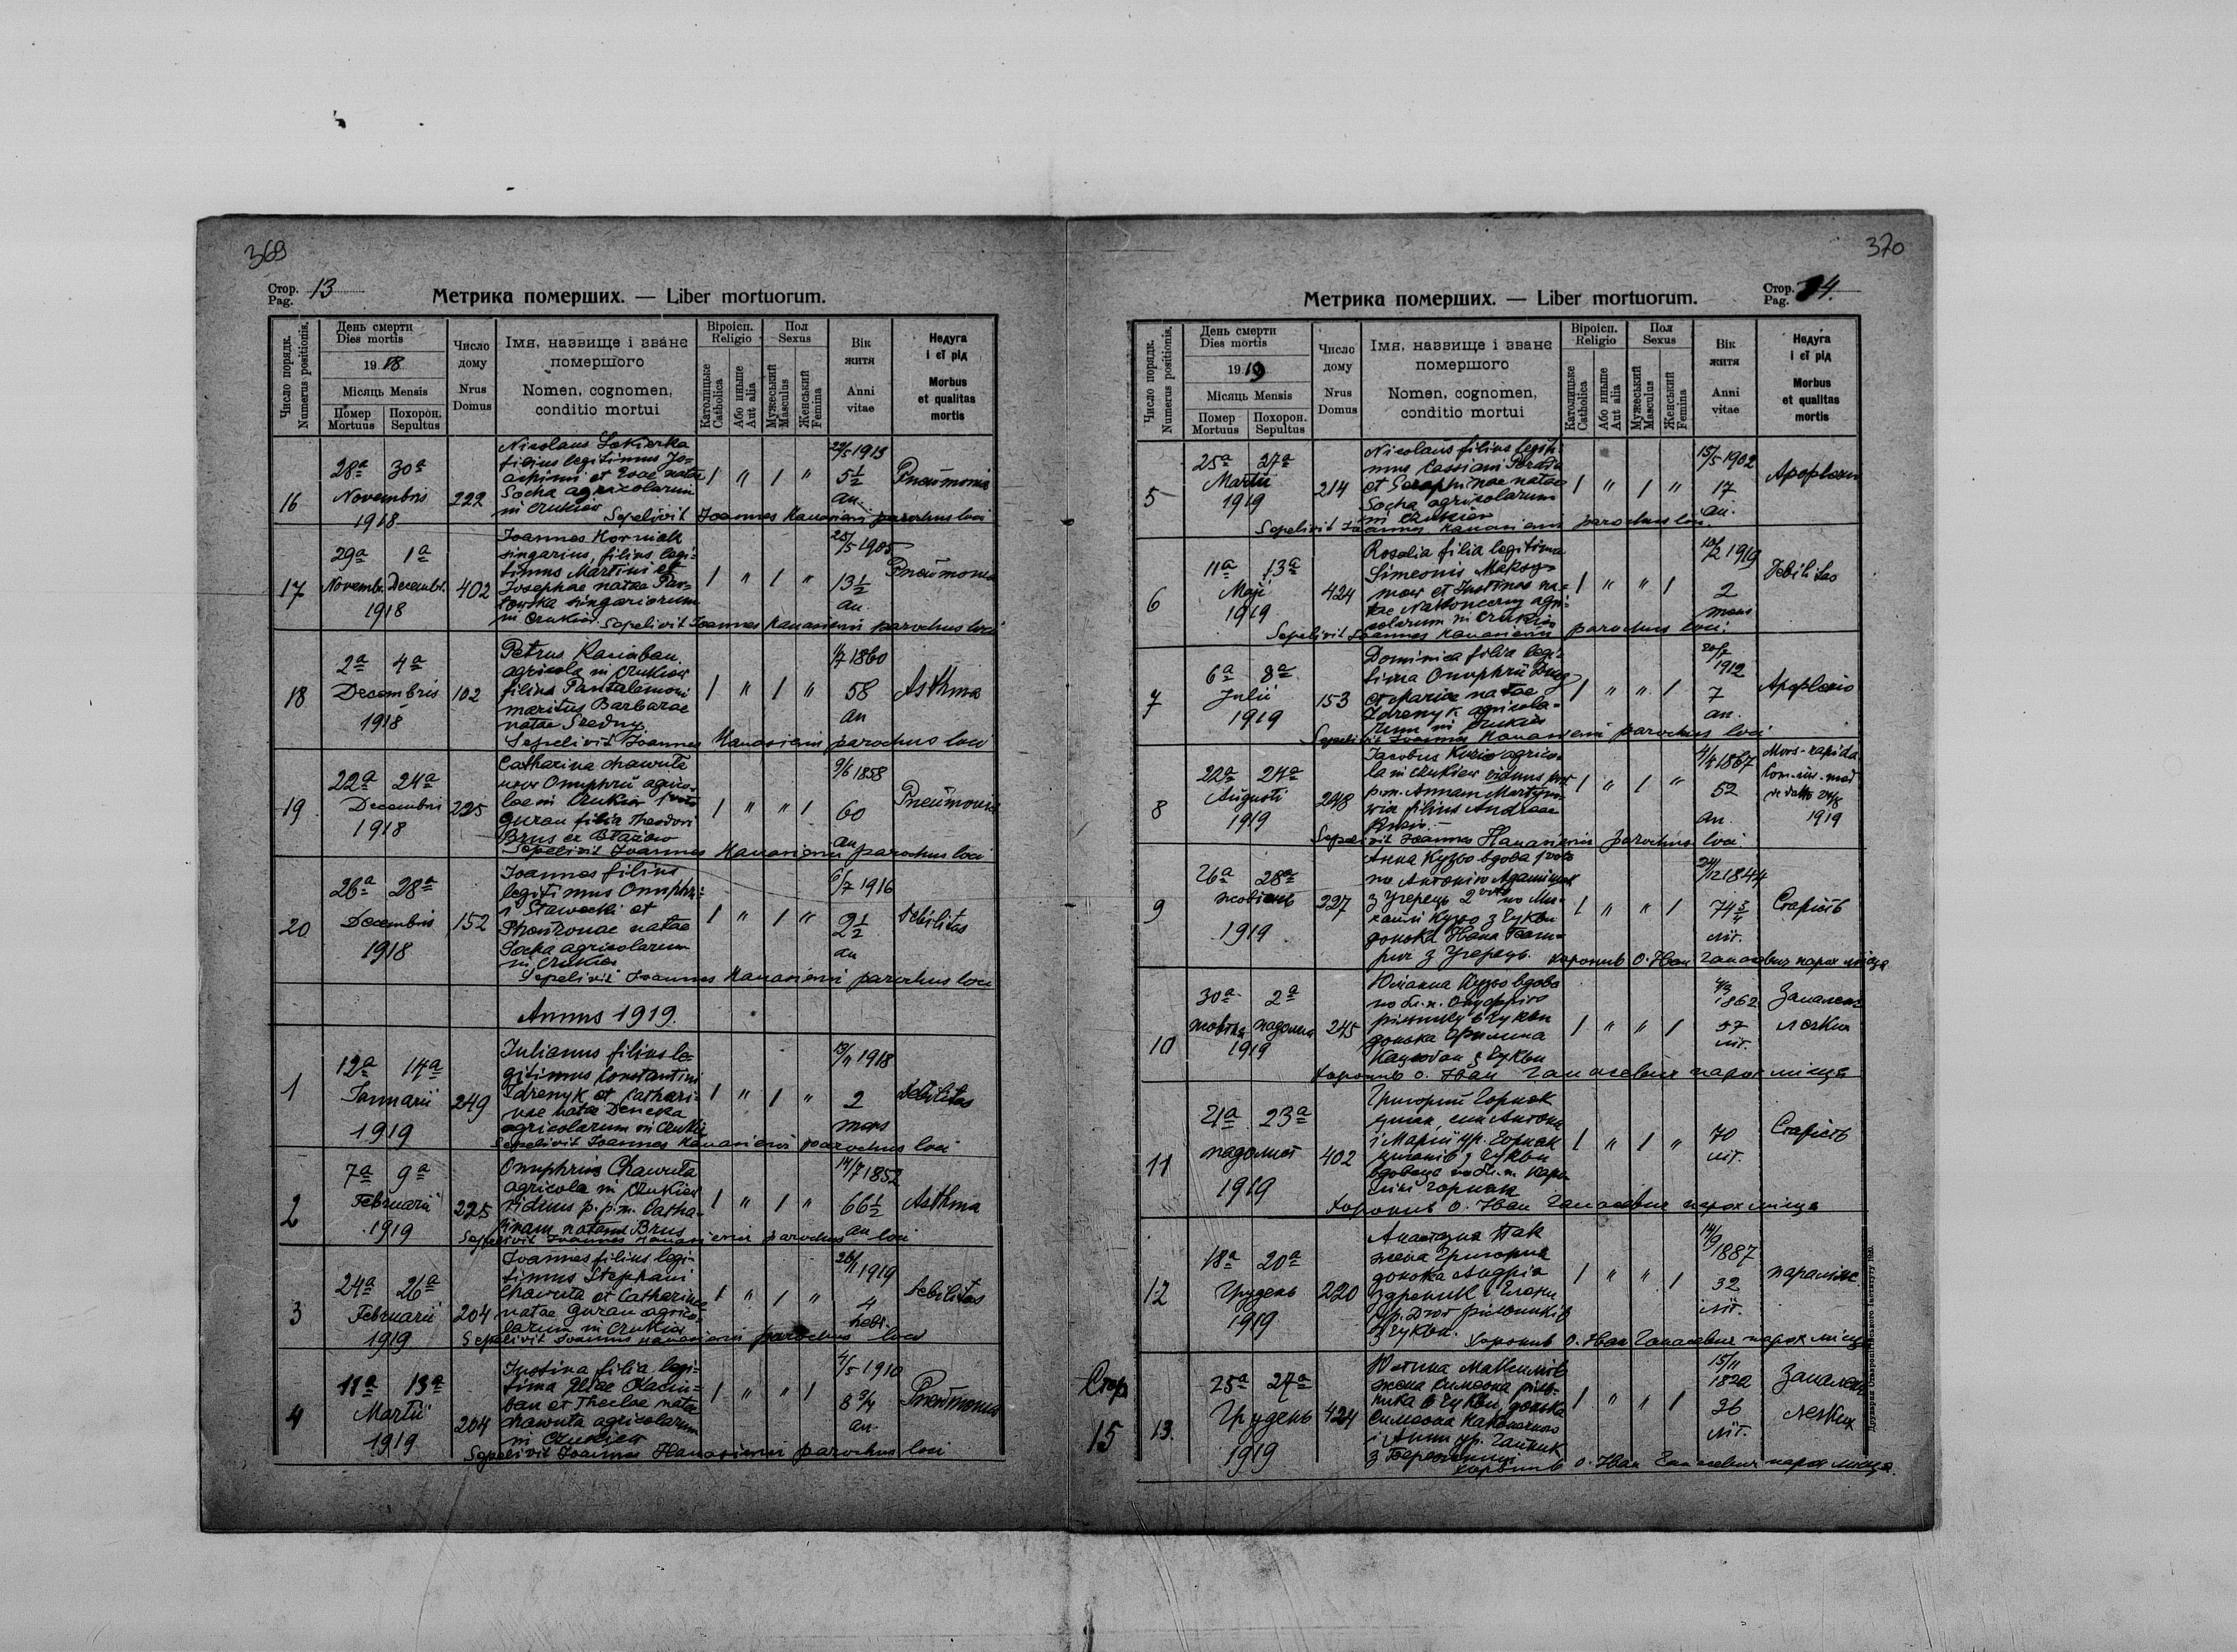 369
Стор.
Pag. 13
Метрика померших. — Liber mortuorum.
Число порядк.
Numerus positionis.
День смерти
Dies mortis
1918
Місяць Mensis
Помер
Mortuus
Похорон.
Sepultus
Число
дому
Nrus
Domus
Імя, назвище і званє
помершого
Nomen, cognomen,
conditio mortui
Віроісп.
Religio
Католицьке
Catholica
Або иньше
Aut alia
Пол
Sexus
Мужеський
Masculus
Женський
Femina
Вік
житя
Anni
vitae
Недуга
і єї рід
Morbus
et qualitas
mortis
16
28a 30a
Novembris
1918
222
Nicolaus
filius legitimus Jo-
achimi et Evae natae
Socha agricolarum
in Czukiew
1 " 1 "
22/5 1913
5 1/2
an.
Pneumonia
Sepelivit Joannes Hanasiewicz parochus loci
17
29a 1a
Novembr. Decembr.
1918
402
Joannes Horniak
singarius, filius legi-
timus Martini et
Josephae natae
singariorum
in Czukiew
1 " 1 "
25/5 1905
13 1/2
an.
Pneumonia
Sepelivit Joannes Hanasiewicz parochus loci
18
2a 4a
Decembris
1918
102
Petrus
agricola in Czukiew
filius Pantalemoni
maritus Barbarae
natae Sredny
1 " 1 "
1/7 1860
58
an
Asthma
Sepelivit Joannes Hanasiewicz parochus loci
19
22a 24a
Decembris
1918
225
Catharina Chawuta
uxor Onuphrii agrico-
lae in Czukiew 1 voto
Guran filia Theodori
Brus ex
1 " " 1
9/6 1858
60
an
Pneumonia
Sepelivit Joannes Hanasiewicz parochus loci
20
26a 28a
Decembris
1918
152
Joannes filius
legitimus Onuphri-
i Stawecki et
natae
Socha agricolarum
in Czukiew
1 " 1 "
6/7 1916
2 1/2
an
Debilitas
Sepelivit Joannes Hanasiewicz parochus loci
Annus 1919.
1
12a 14a
Januarii
1919
249
Julianus filius le-
gitimus Constantini
Zdrenyk et Cathari-
nae natae Deneka
agricolarum in Czukiew
1 " 1 "
13/11 1918
2
mens
Debilitas
Sepelivit Joannes Hanasiewicz parochus loci
2
7a 9a
Februarii
1919
225
Onuphrius Chawuta
agricola in Czukiew
viduus p. p.m. Catha-
rinam natam Brus
1 " 1 "
14/7 1852
66 1/2
an
Asthma
Sepelivit Joannes Hanasiewicz parochus loci
3
24a 26a
Februarii
1919
204
Joannes filius legi-
timus Stephani
Chawuta et Catharinae
natae Guran agrico-
larum in Czukiew
1 " 1 "
26/1 1919
4
hebd.
Debilitas
Sepelivit Joannes Hanasiewicz parochus loci
4
11a 13a
Martii
1919
204
Justina filia legi-
tima Eliae
et Theclae nata
Chawuta agricolarum
in Czukiew
1 " " 1
4/5 1910
8 3/4
an.
Pneumonia
Sepelivit Joannes Hanasiewicz parochus loci
370
Стор.
Pag. 14.
Метрика померших. — Liber mortuorum.
Число порядк.
Numerus positionis.
День смерти
Dies mortis
1919
Місяць Mensis
Помер
Mortuus
Похорон.
Sepultus
Число
дому
Nrus
Domus
Імя, назвище і званє
помершого
Nomen, cognomen,
conditio mortui
Віроісп.
Religio
Католицьке
Catholica
Або иньше
Aut alia
Пол
Sexus
Мужеський
Masculus
Женський
Femina
Вік
житя
Anni
vitae
Недуга
і єї рід
Morbus
et qualitas
mortis
5
25a 27a
Martii
1919
214
Nicolaus filius legiti-
mus Cassiani
et Seraphinae natae
Socha agricolarum
in Czukiew
1 " 1 "
15/5 1902
17
an.
Apoplexia
Sepelivit Joannes Hanasiewicz parochus loci.
6
11a 13a
Maji
1919
424
Rosalia filia legitima
Simeonis Maksy-
mow et Justinae na-
tae agri-
colarum in Czukiew
1 " " 1
10/2 1919
2
mens
Debilitas
Sepelivit Joannes Hanasiewicz parochus loci.
7
6a 8a
Julii
1919
153
Dominica filia legi-
tima Onuphrii
et Mariae natae
Zdrenyk agricola-
rum in Czukiew
1 " " 1
20/7
1912
7
an.
Apoplexia
Sepelivit Joannes Hanasiewicz parochus loci
8
22a 24a
Augusti
1919
248
Jacobus agrico-
la in Czukiew viduus post
p.m. Annam
filius Andreae
1 " 1 "
4/5 1867
52
an.
Mors rapida
1919
Sepelivit Joannes Hanasiewicz parochus loci
9
26a 28a
жовтень
1919
227
Анна Кузьо вдова 1 voto
по Антонію
з Угерець 2 voto по Ми-
хайлі Кузьо з Чукви
донька Івана
з Угерець.
1 " " 1
24/12 1844
74 3/4
літ.
Старість
Хоронив О. Іван Ганасевич парох місця
10
30a 2a
жовтня падолиста
1919
245
Юліанна Кузьо вдова
по бл. п. Онуфрію
рільнику в Чукви
донька
з Чукви
1 " " 1
1862
57
літ.
Запаленє
легких
Хоронив о. Іван Ганасевич парох місця
11
21a 23a
падолист
1919
402
Григорий Горняк
циган, син Антона
і Марії ур. Горняк
циганів з Чукви
вдовець по бл. п.
Горняк
1 " 1 "
70
літ.
Старість
Хоронив О. Іван Ганасевич парох місця
12
18a 20a
Грудень
1919
220
Анастазия Пак
жена Григория
донька Андрія
Здреник і
ур. рільників
з Чукви.
1 " " 1
14/9
1887
32
літ.
параліж
Хоронив О. Іван Ганасевич парох місця
Стор
15
13.
25a 27a
Грудень
1919
424
Юстина Максимів
жена Симеона ріль-
ника в Чукви, донька
Симеона
і Анни ур.
з
1 " " 1
15/11
1822
36
літ.
Запаленє
легких
Хоронив о. Іван Ганасевич парох місця.
Друкарня Ставропігійського Інституту